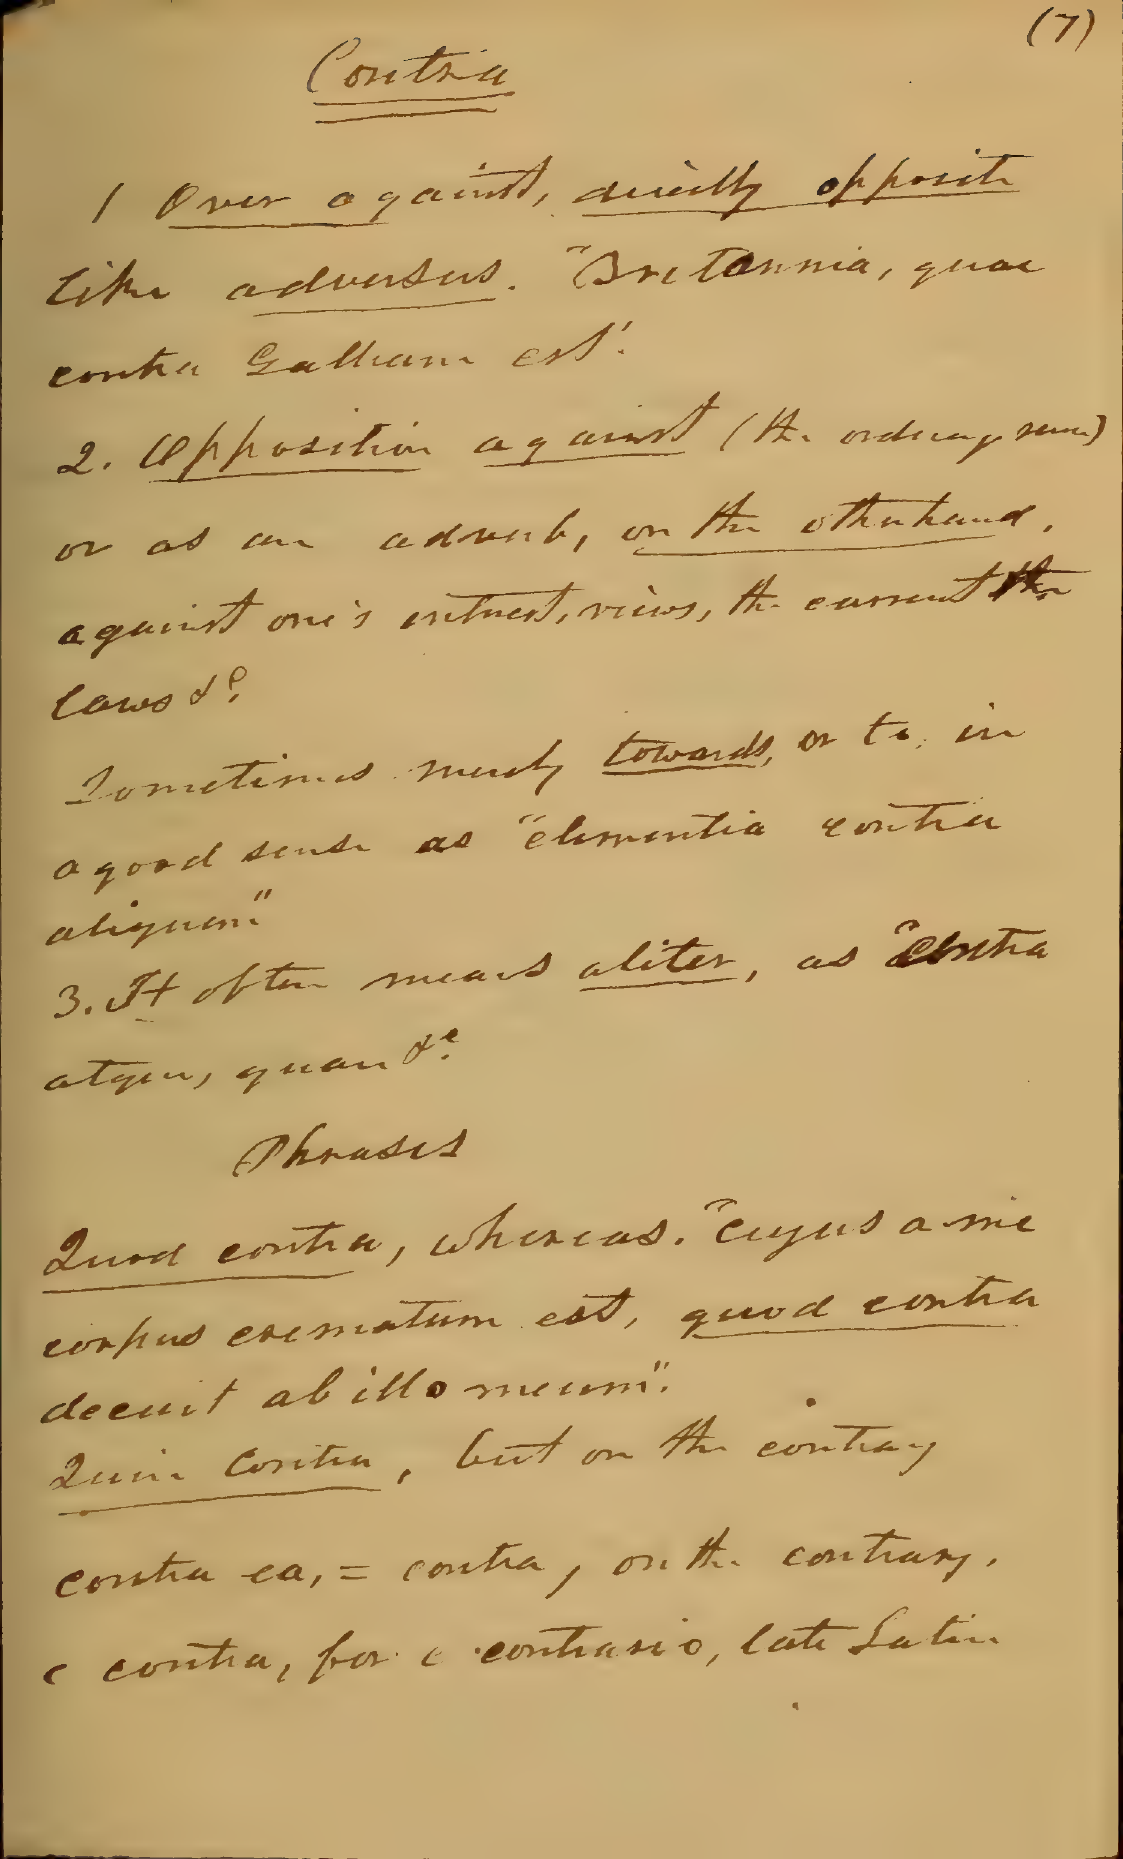 (7)
Contra
1 Over against, directly opposite
like adversus. "Britannia, quae
contra Galliam est".
2. Opposition against (the ordinary sense)
or as an adverb, on the otherhand,
against one's interest, views, the current the
laws &c.
Sometimes merely towards, or to, in
a good sense as "clementia contra
aliquem"
3. It often means aliter, as "contra
atque, quam &c.
Phrases
Quod contra, whereas. "cujus a me
corpus crematum est, quod contra
decuit ab illo meum".
Quin contra, but on the contrary
contra ea, = contra, on the contrary.
e contra, for e contrario, late Latin